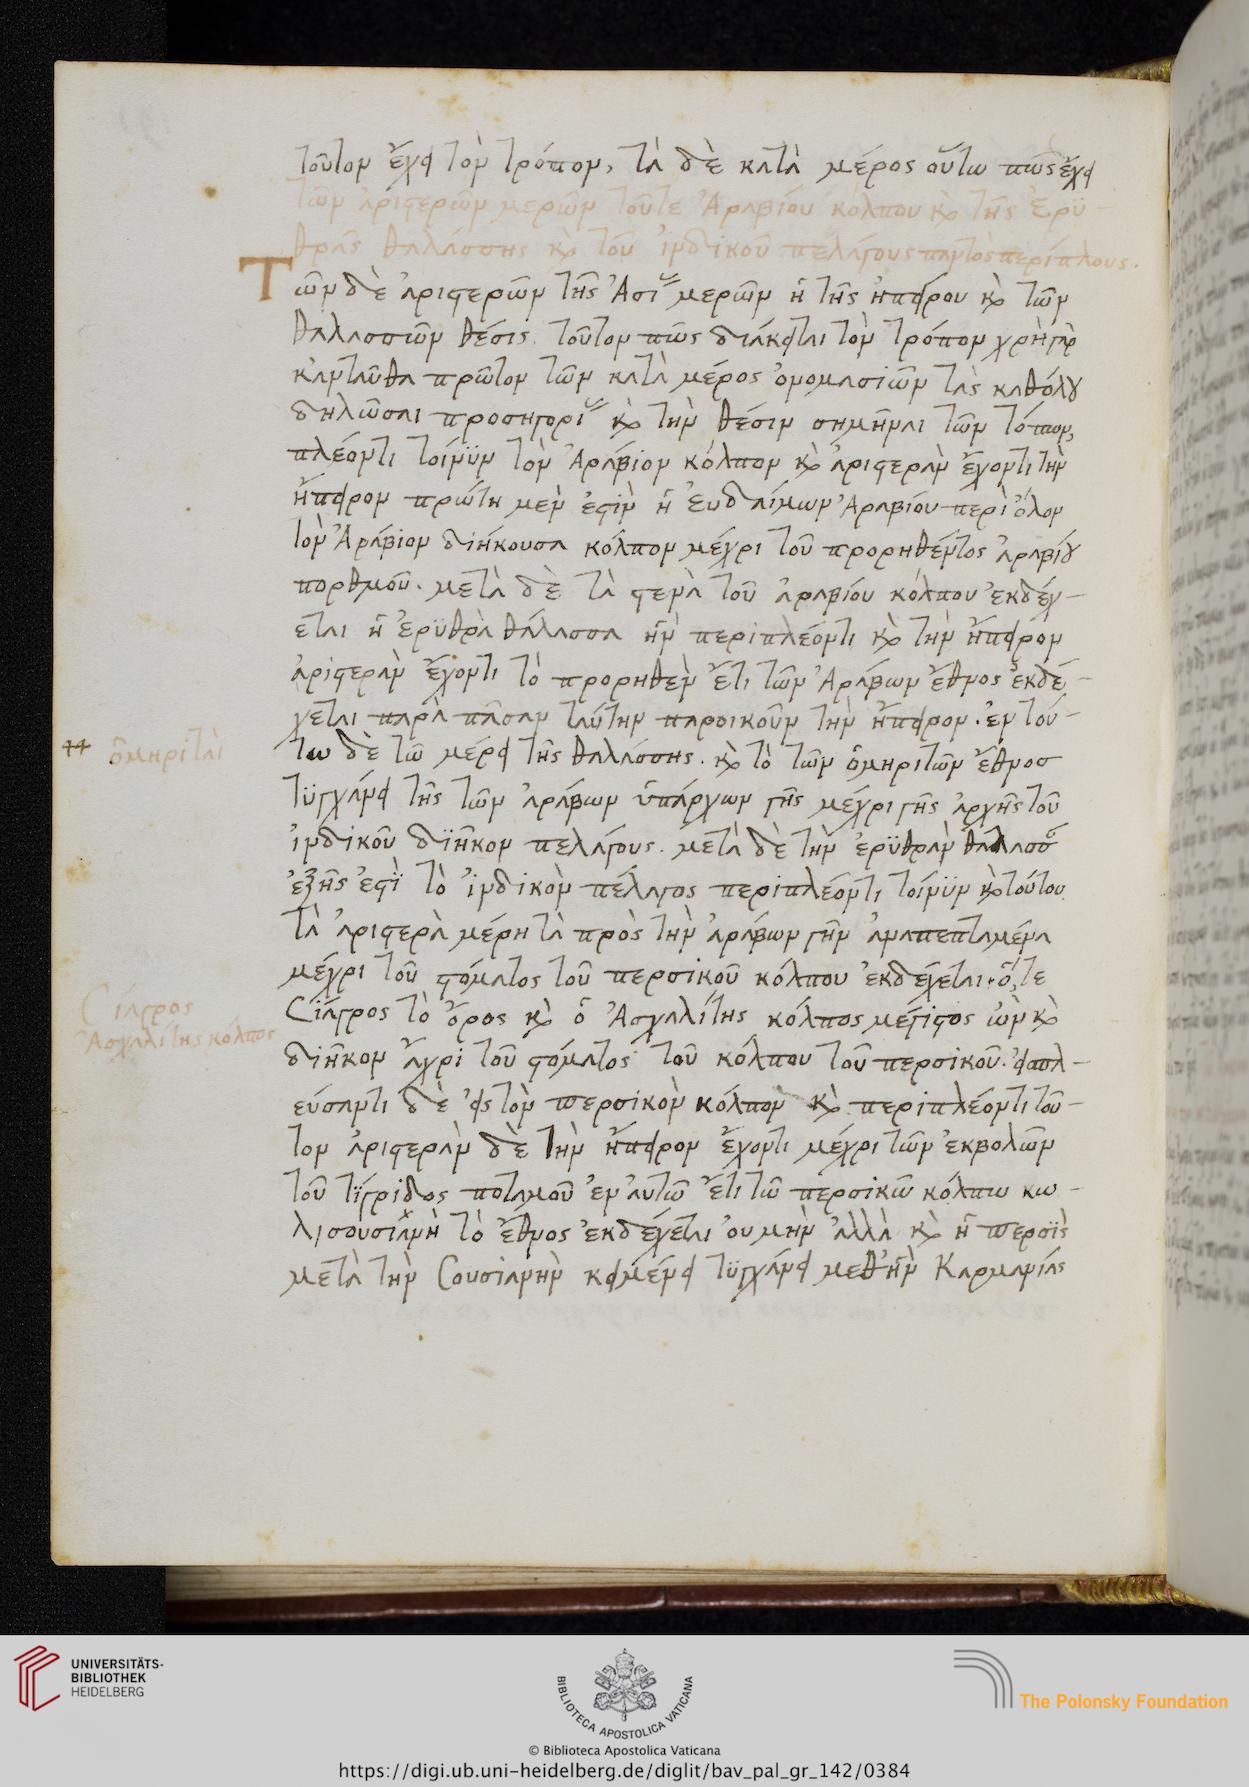 τοῦτον ἔχει τὸν τρόπον, τὰ δὲ κατὰ μέρος οὕτω πως ἔχει
τῶν ἀριστερῶν μερῶν τοῦτε Ἀραβίου κόλπου κὶ τῆς Ἐρυ-
θρᾶς θαλάσσης κὶ τοῦ ἰνδικοῦ πελάγους παντὸς περίπλους.
Τῶν δὲ ἀριστερῶν τῆς Ἀσίας μερῶν ἡ τῆς ἠπείρου κὶ τῶν
θαλασσῶν θέσις τοῦτον πῶς διάκειται τὸν τρόπον χρὴ γὰρ
κἀνταῦθα πρῶτον τῶν κατὰ μέρος ὀνομασιῶν τὰς καθόλου
δηλῶσαι προσηγορίας κὶ τὴν θέσιν σημῆναι τῶν τόπων,
πλέοντι τοίνϋν τὸν Ἀράβιον κόλπον κὶ ἀριστερὰν ἔχοντι τὴν
ἤπειρον πρώτη μεν ἐστὶν ἡ Ἐυδαίμων Ἀραβίου περὶ ὅλον
τὸν Ἀράβιον διήκουσα κόλπον μέχρι τοῦ προρηθέντος ἀραβίου
πορθμοῦ. μετὰ δὲ τὰ στενὰ τοῦ ἀραβίου κόλπου ἐκδέχ-
εται ἡ ἐρϋθρὰ θάλασσα ἣν περιπλέοντι κὶ τὴν ἤπειρον
ἀριστερὰν ἔχοντι τὸ προρηθὲν ἔτι τῶν Ἀράβων ἔθνος ἐκδέ-
χεται παρὰ πᾶσαν ταύτην παροικοῦν τὴν ἤπειρον. ἐν τού-
τω δὲ τῶ μέρει τῆς θαλάσσης. κὶ τὸ τῶν ὁμηριτῶν ἔθνος
τϋγχάνει τῆς τῶν ἀράβων ὑπάρχων γῆς μέχρι γῆς ἀρχῆς τοῦ
ἰνδικοῦ διῆκον πελάγους. μετὰ δὲ τὴν ἐρϋθρὰν θάλασσαν
ἑξῆς ἐστὶ τὸ ἰνδικὸν πέλαγος περιπλέοντι τοίνϋν κὶ τούτου
τὰ ἀριστερὰ μέρη τὰ πρὸς τὴν ἀράβων γῆν ἀναπεπταμένα
μέχρι τοῦ στόματος τοῦ περσικοῦ κόλπου ἐκδέχεται. ὅ,τε
Σίαγρος τὸ ὄρος κὶ ὁ Ἀσχαλίτης κόλπος μέγιστος ὢν κὶ
διῆκον ἄχρι τοῦ στόματος τοῦ κόλπου τοῦ περσικοῦ. εἰσπλ-
εύσαντι δὲ εἰς τὸν περσικὸν κόλπον κὶ περιπλέοντι τοῦ-
τον ἀριστερὰν δὲ τὴν ἤπειρον ἔχοντι μέχρι τῶν ἐκβολῶν
τοῦ τίγριδος ποταμοῦ ἐν αυτῶ ἔτι τῶ περσικῶ κόλπω κω-
λισουσιανὴ τὸ ἔθνος ἐκδέχεται ου μὴν ἀλλὰ κὶ ἡ περσὶς
μετὰ τὴν Σουσιανὴν κειμένει τϋγχάνει μεθ᾽ἣν Καρμανίας
ὁμηρίται
Σίαγρος
Ἀσχαλίτης κόλπος
UNIVERSITÄTS-
BIBLIOTHEK
HEIDELBERG
BIBLIOTECA APOSTOLICA VATICANA
The Polonsky Foundation
© Biblioteca Apostolica Vaticana
https://digi.ub.uni-heidelberg.de/diglit/bav_pal_gr_142/0384